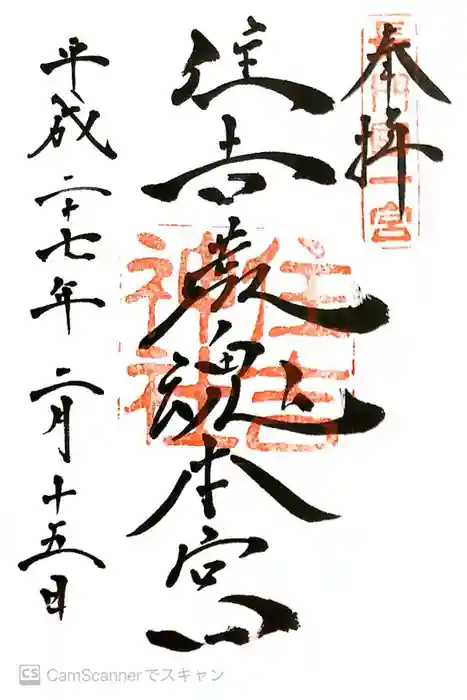 奉拝
長門國一宮
住吉荒魂本宮
住吉
神社
平成二十七年 二月十五日
CS CamScannerでスキャン